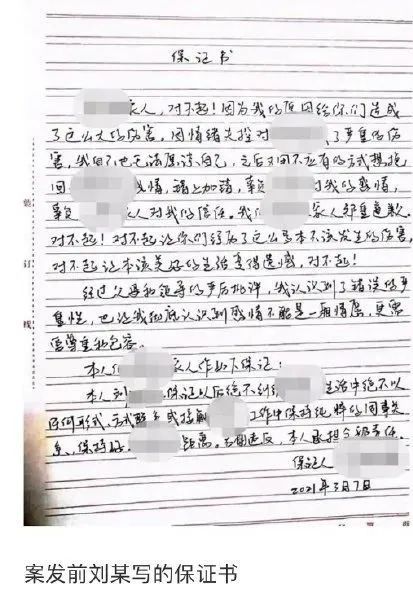 保证书
家人，对不起！因为我的原因给你们造成
了这么大的伤害。因情绪失控对 了严重的伤
害，我自己也无法原谅自己，之后又因不应有的方式想挽
回 感情，祸上加祸，辜负 对我的感情，
辜负 家人对我的信任。我 家人郑重道歉。
对不起！对不起让你们经历了这么多本不该发生的伤害，
对不起让本该美好的生活变得遗憾，对不起！
经过父母和领导的严厉批评，我认识到了错误的严
重性，也让我彻底认识到感情不能是一厢情愿，更需
要尊重和包容。
本人 家人作如下保证：
本人 保证以后绝不纠缠 生活中绝不以
任何形式、方式联系或接触 工作中保持纯粹的同事关
系，保持好 距离。若有违反，本人承担全部责任。
保证人
2021年3月7日
装
订
线
案发前刘某写的保证书